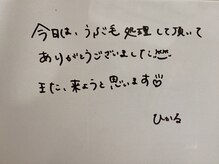 今日は、うぶ毛処理して頂いて
ありがとうございました
また、来ようと思います
ひかる